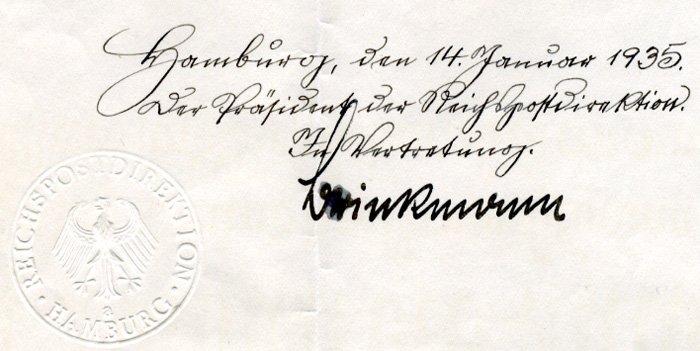 Hamburg, den 14. Januar 1935.
Der Präsident der Reichspostdirektion.
In Vertretung.
Brinkmann
REICHSPOSTDIREKTION
a
HAMBURG